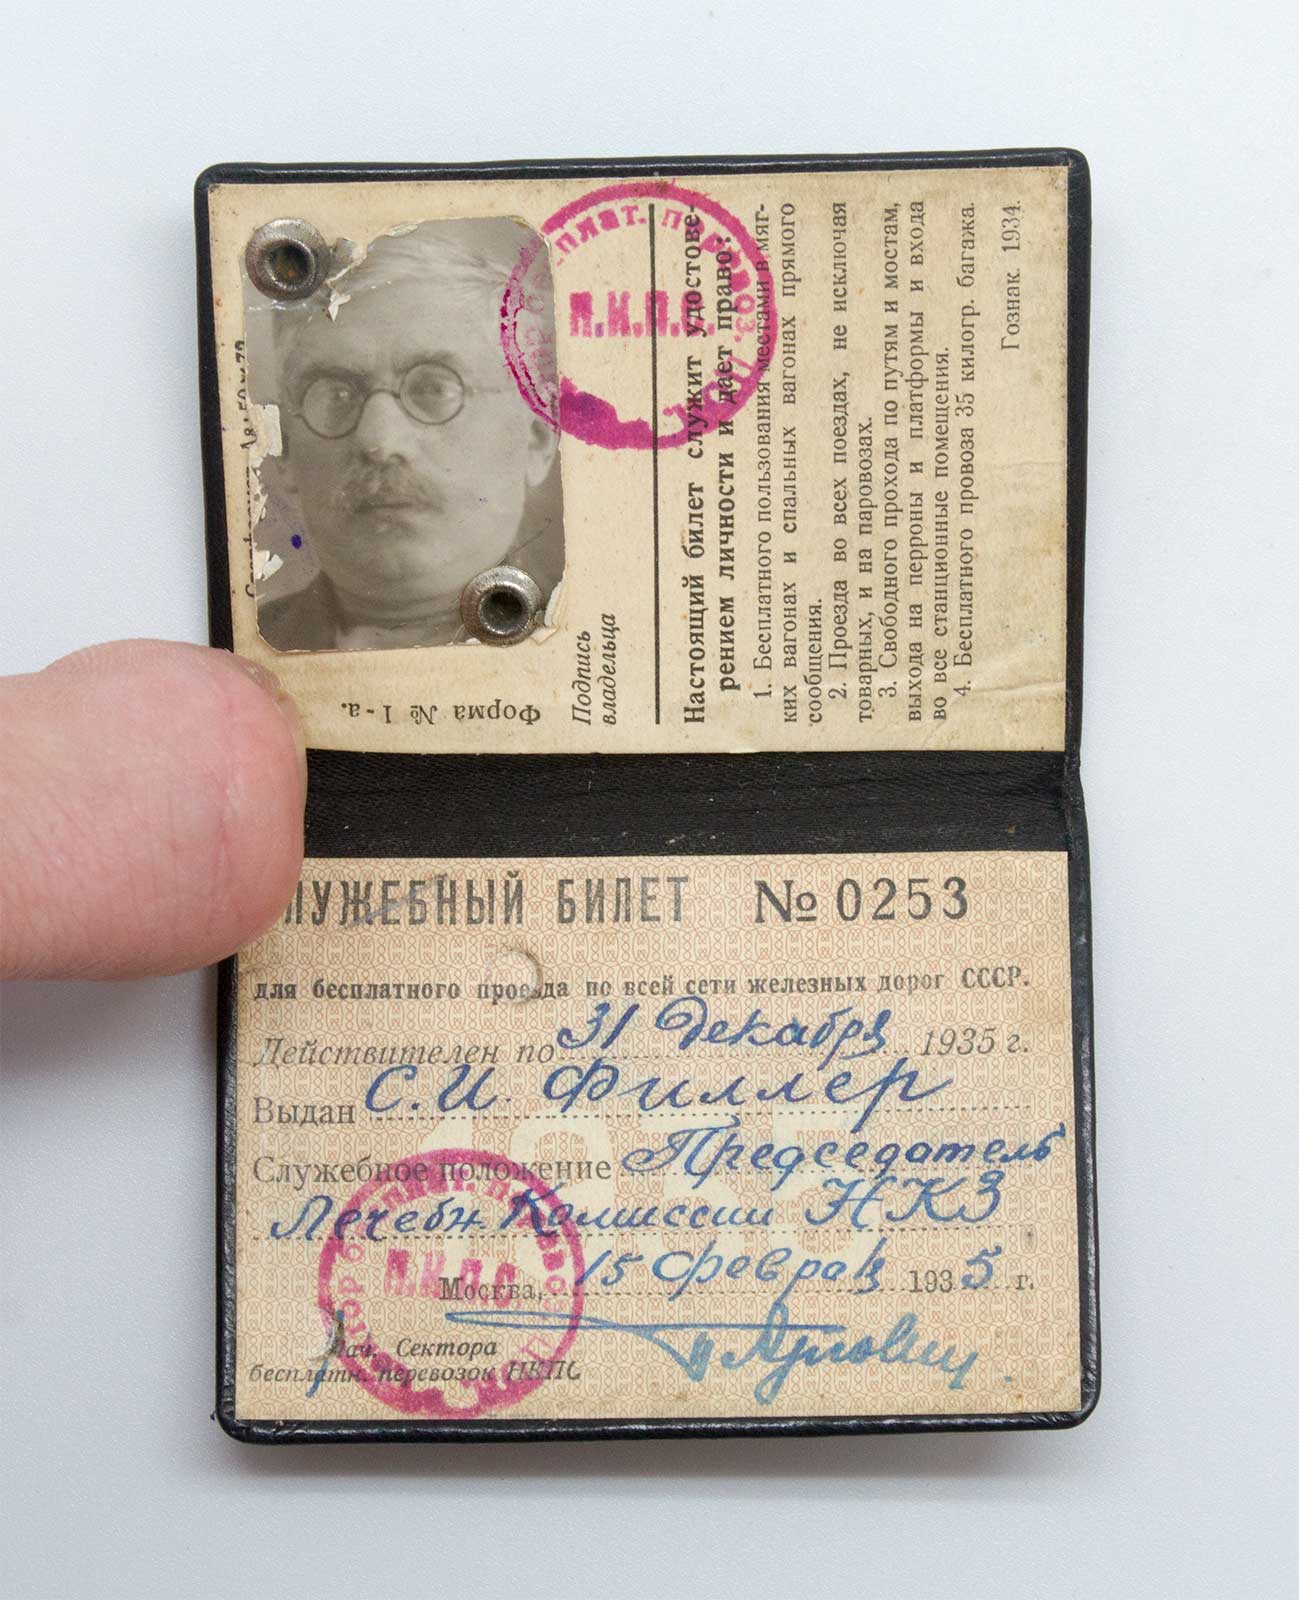 Форма № 1-а.
Подпись
владельца
Настоящий билет служит удостове-
рением личности и дает право:
1. Бесплатного пользования местами в мяг-
ких вагонах и спальных вагонах прямого
сообщения.
2. Проезда во всех поездах, не исключая
товарных, и на паровозах.
3. Свободного прохода по путям и мостам,
выхода на перроны и платформы и входа
во все станционные помещения.
4. Бесплатного провоза 35 килогр. багажа.
Гознак. 1934.
плат. перевоз.
Н.К.П.С.
ЛУЖЕБНЫЙ БИЛЕТ № 0253
для бесплатного проезда по всей сети железных дорог СССР.
Действителен по 31 Декабря 1935 г.
Выдан С.И. Филлер
Служебное положение Председатель
Лечебн. Комиссии НКЗ
Москва, 15 Февраля 1935 г.
Нач. Сектора
бесплатн. перевозок НКПС
Н.К.П.С.